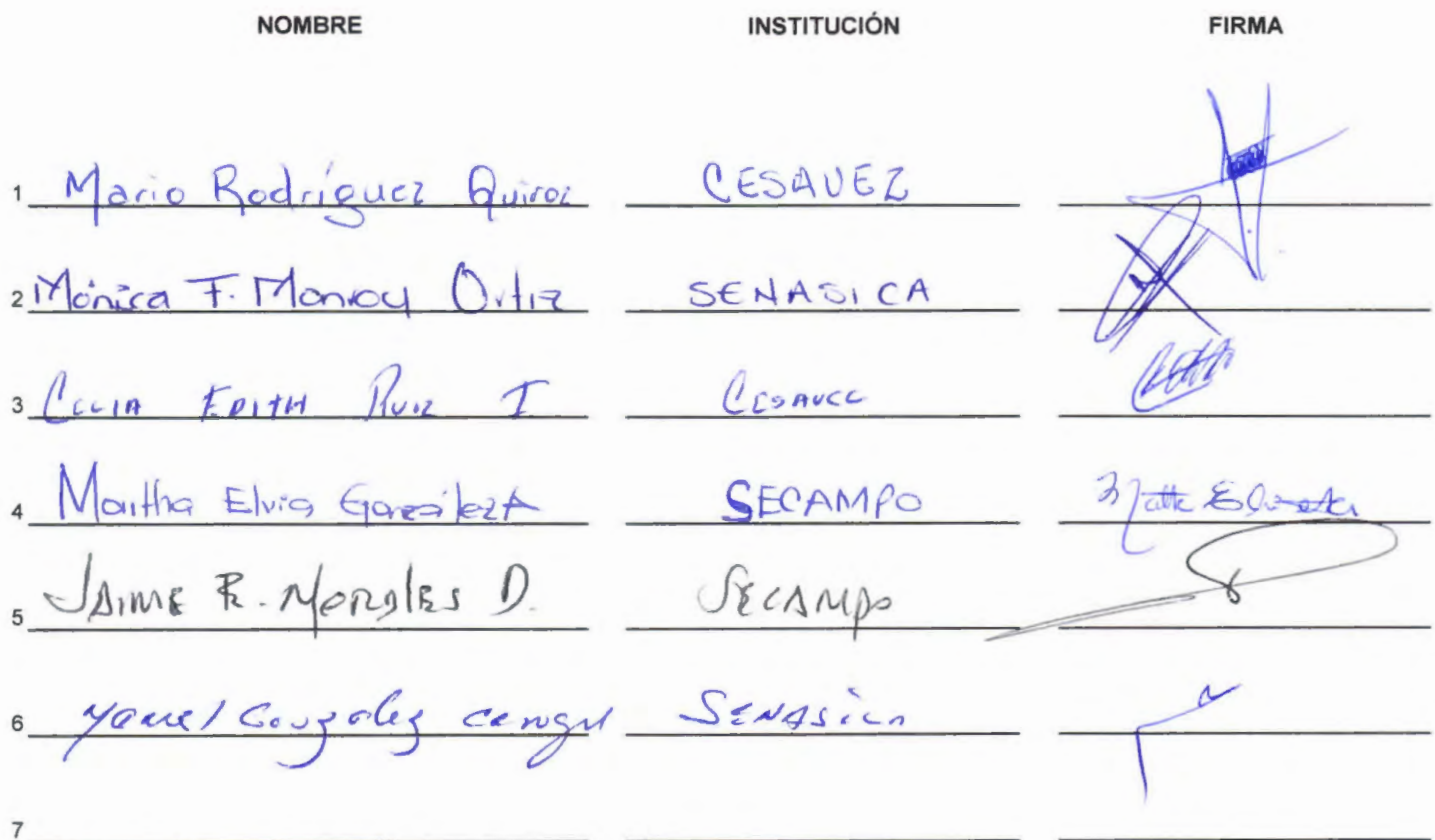 NOMBRE INSTITUCIÓN FIRMA
1 Mario Rodríguez Quiroz CESAVEZ
2 Mónica F. Monroy Ortiz SENASICA
3 CELIA EDITH RUIZ I CESAVEZ
4 Martha Elvia González A SECAMPO
5 JAIME R. MORALES D. SECAMPO
6 González SENASICA
7